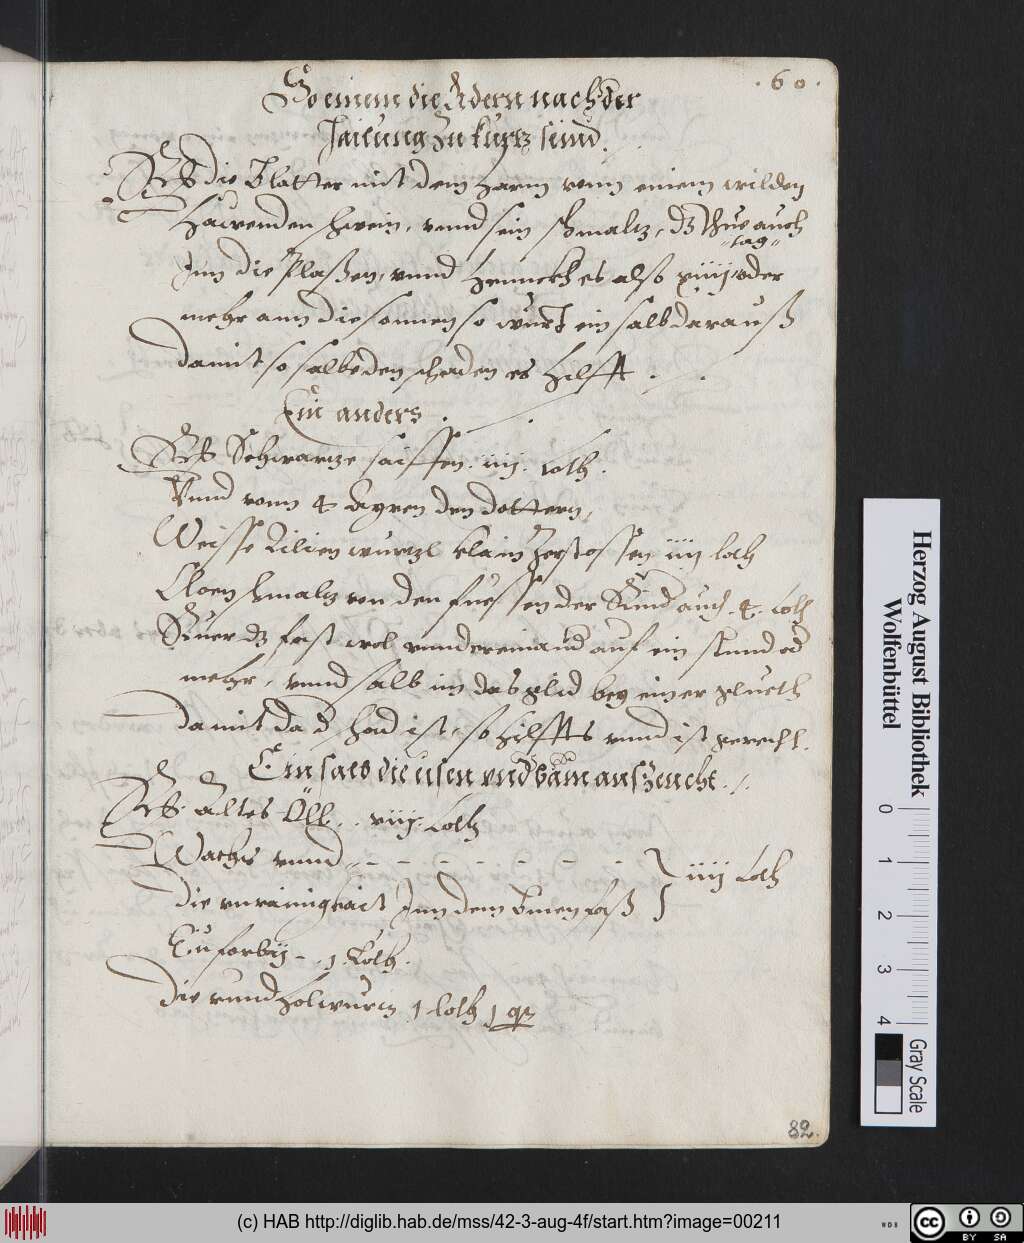 . 60 .
So einem die Adern nach der
Hailung zu kurtz seind.
Rp die Blatter mit dem Harm vonn einem wilden
Hawenden schwein, vnnd sein schmaltz, dz thue auch
„tag„
Inn die Plaßen, vnnd henckh es also xiiij oder
mehr ann die sonnen so wurt ein salb darauß
damit so salbe den schaden es hilfft .
Ein anders .
Rp Schwartze saiffen . iiij . Loth .
Vnnd vonn 4 Ayren den dottern,
Weisse Lilien wurtzl klain zerstossen iiij loth
schmaltz von den fuessen der Rind auch . 4 . Loth
dz fast wol vndereinand auf ein stund od
mehr, vnnd salb im das glid bey einer glueth
damit da d schad ist, so hilffts vnnd ist gerecht .
Ein salb die eisen vnd baim auszeucht .
Rp . Altes Öll . . viij . Loth
Wachs vnnd
die vnrainigkait Inn dem Binen faß } iiij Loth
Euforbij - . 1 . Loth .
Die rund holwurtz 1 loth 1 q
82.
Herzog August Bibliothek
Wolfenbüttel
0 1 2 3 4
Gray Scale
(c) HAB http://diglib.hab.de/mss/42-3-aug-4f/start.htm?image=00211
WDB
cc BY SA